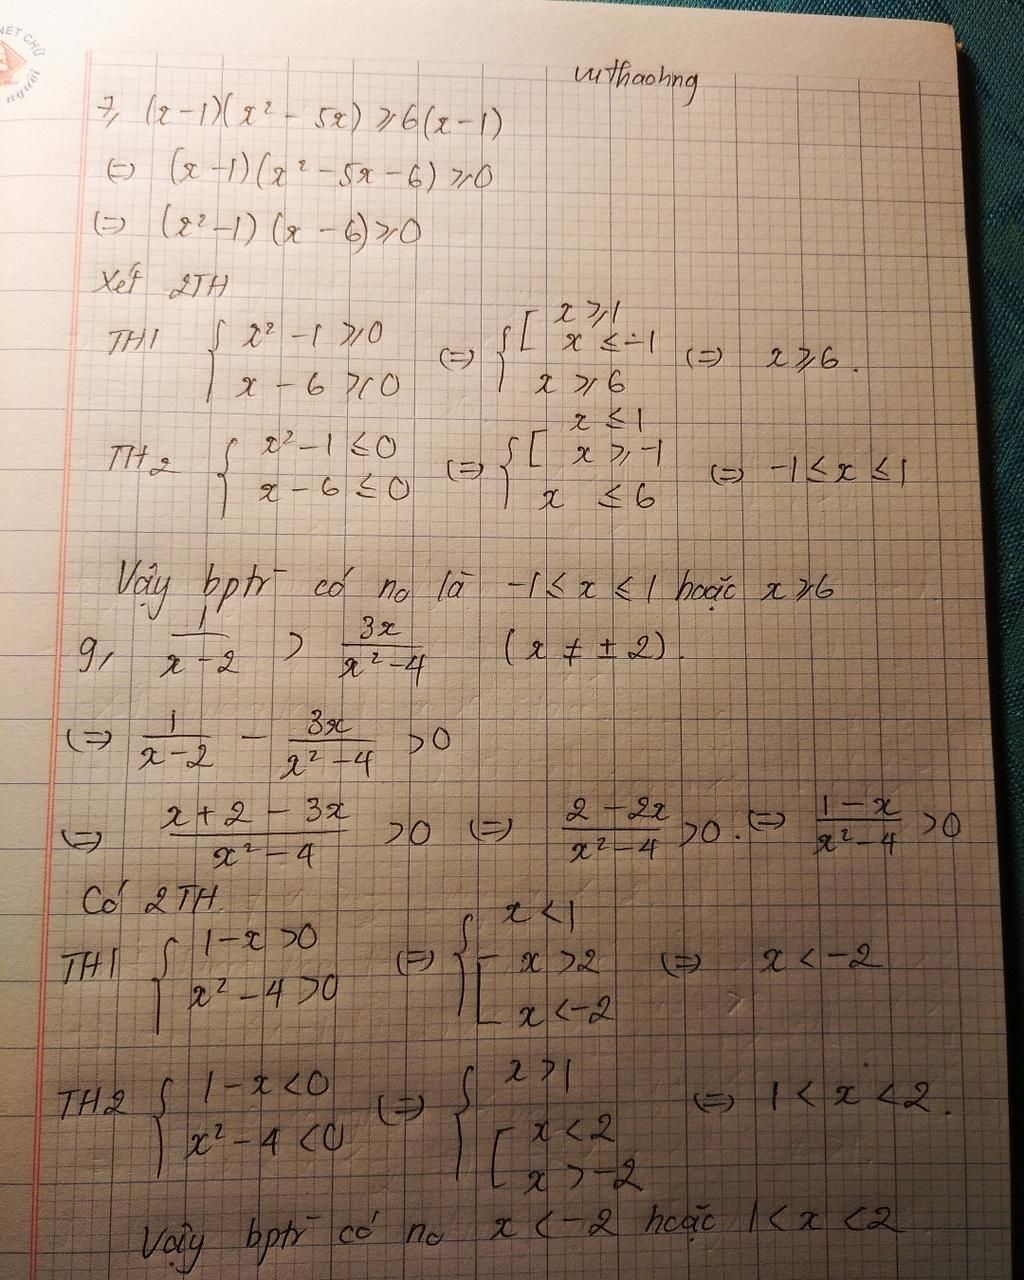 NÉT CHỮ
người
vuthaohng
7, (x-1)(x² - 5x) ≥ 6(x-1)
(=) (x-1)(x² - 5x - 6) ≥ 0
(=) (x² - 1)(x - 6) ≥ 0
Xét 2TH
TH1 { x² - 1 ≥ 0 ; x - 6 ≥ 0 (=) { [ x ≥ 1 ; x ≤ -1 ; x ≥ 6 (=) x ≥ 6.
TH2 { x² - 1 ≤ 0 ; x - 6 ≤ 0 (=) { [ x ≤ 1 ; x ≥ -1 ; x ≤ 6 (=) -1 ≤ x ≤ 1
Vậy bptr có no là -1 ≤ x ≤ 1 hoặc x ≥ 6
9, 1/(x-2) > 3x/(x²-4) (x ≠ ± 2).
(=) 1/(x-2) - 3x/(x²-4) > 0
(=) (x+2-3x)/(x²-4) > 0 (=) (2-2x)/(x²-4) > 0. (=) (1-x)/(x²-4) > 0
Có 2TH
TH1 { 1-x > 0 ; x² - 4 > 0 (=) { x < 1 ; [ x > 2 ; x < -2 (=) x < -2
TH2 { 1-x < 0 ; x² - 4 < 0 (=) { x > 1 ; [ x < 2 ; x > -2 (=) 1 < x < 2.
Vậy bptr có no x < -2 hoặc 1 < x < 2